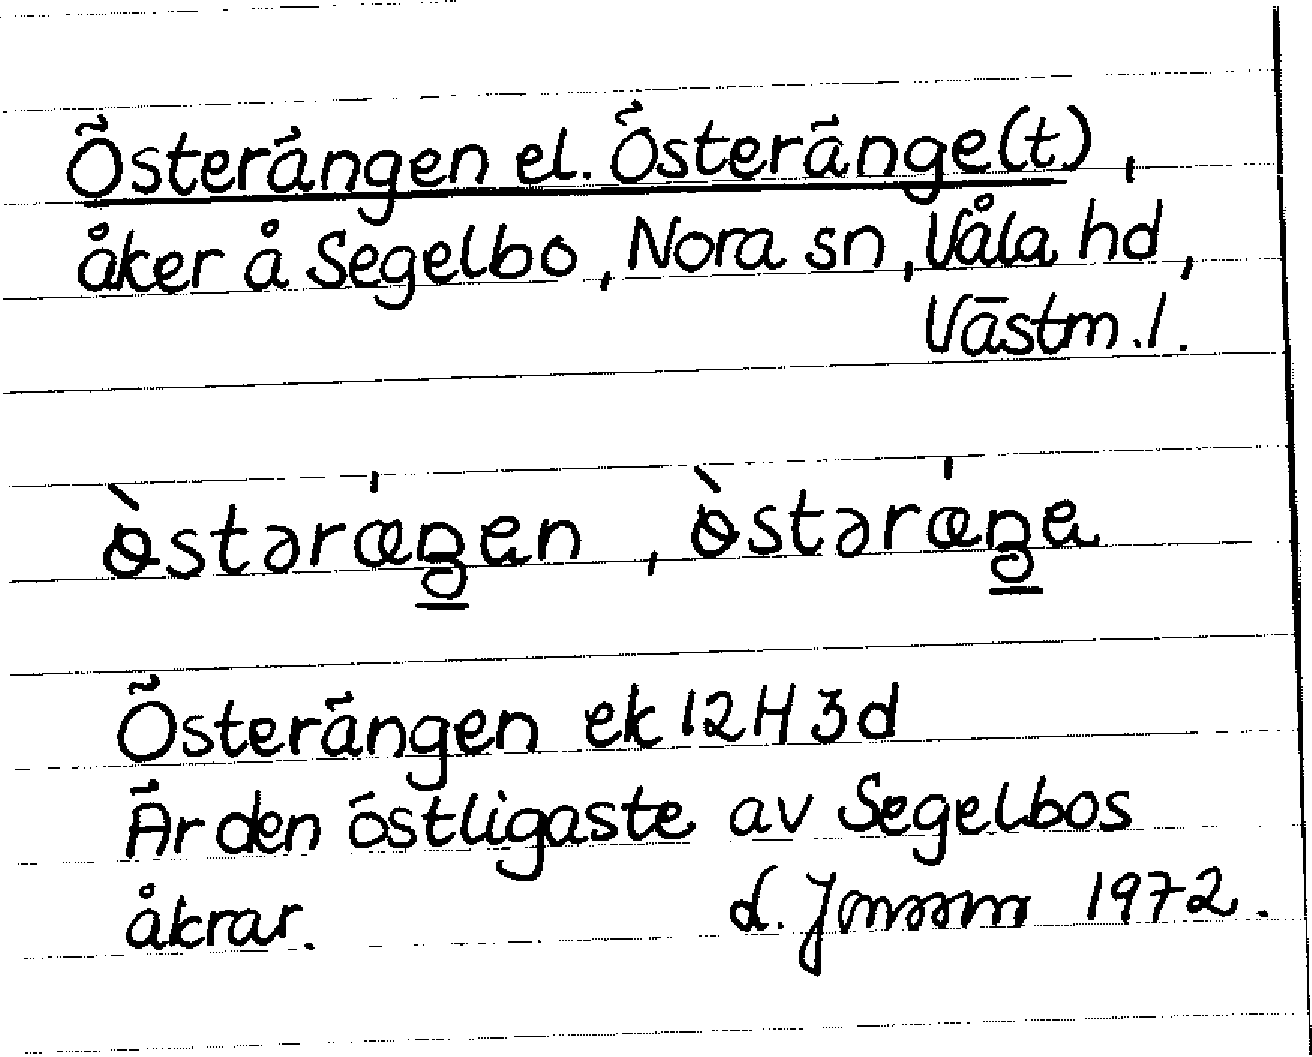 Österängen el. Österänge(t),
åker å Segelbo, Nora sn, Våla hd,
Västm. l.
ὸstərǽŋen, ὸstərǽŋe
Österängen ek 12H 3d
Är den östligaste av Segelbos
åkrar. d. 1972.